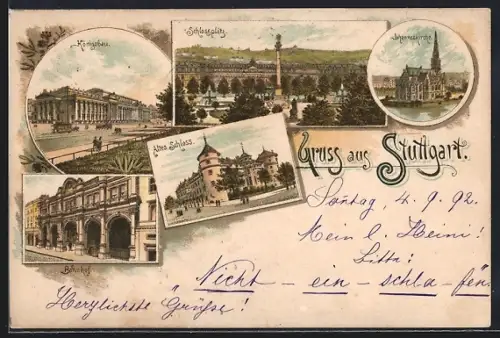 Königsbau.
Schlossplatz
Johanneskirche.
Altes Schloss.
Bahnhof.
Gruss aus Stuttgart.
Sonntag, 4. 9. 92.
Mein l. Heini!
Bitte:
Nicht – ein – schla – fen
Herzlichste Grüsse!